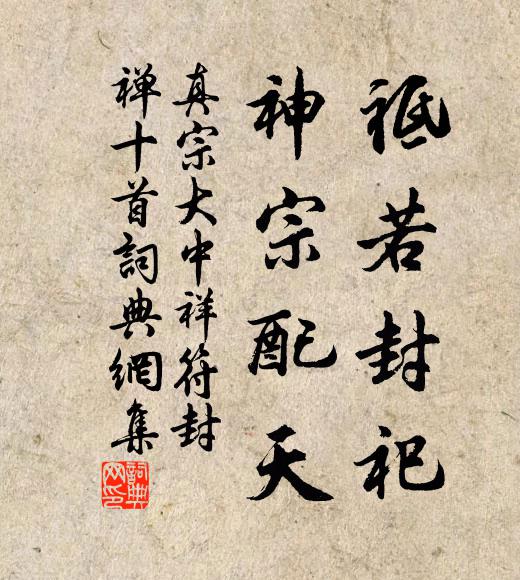 祗若封祀
神宗配天
真宗大中祥符封
禅十首詞典網集
詞典网印